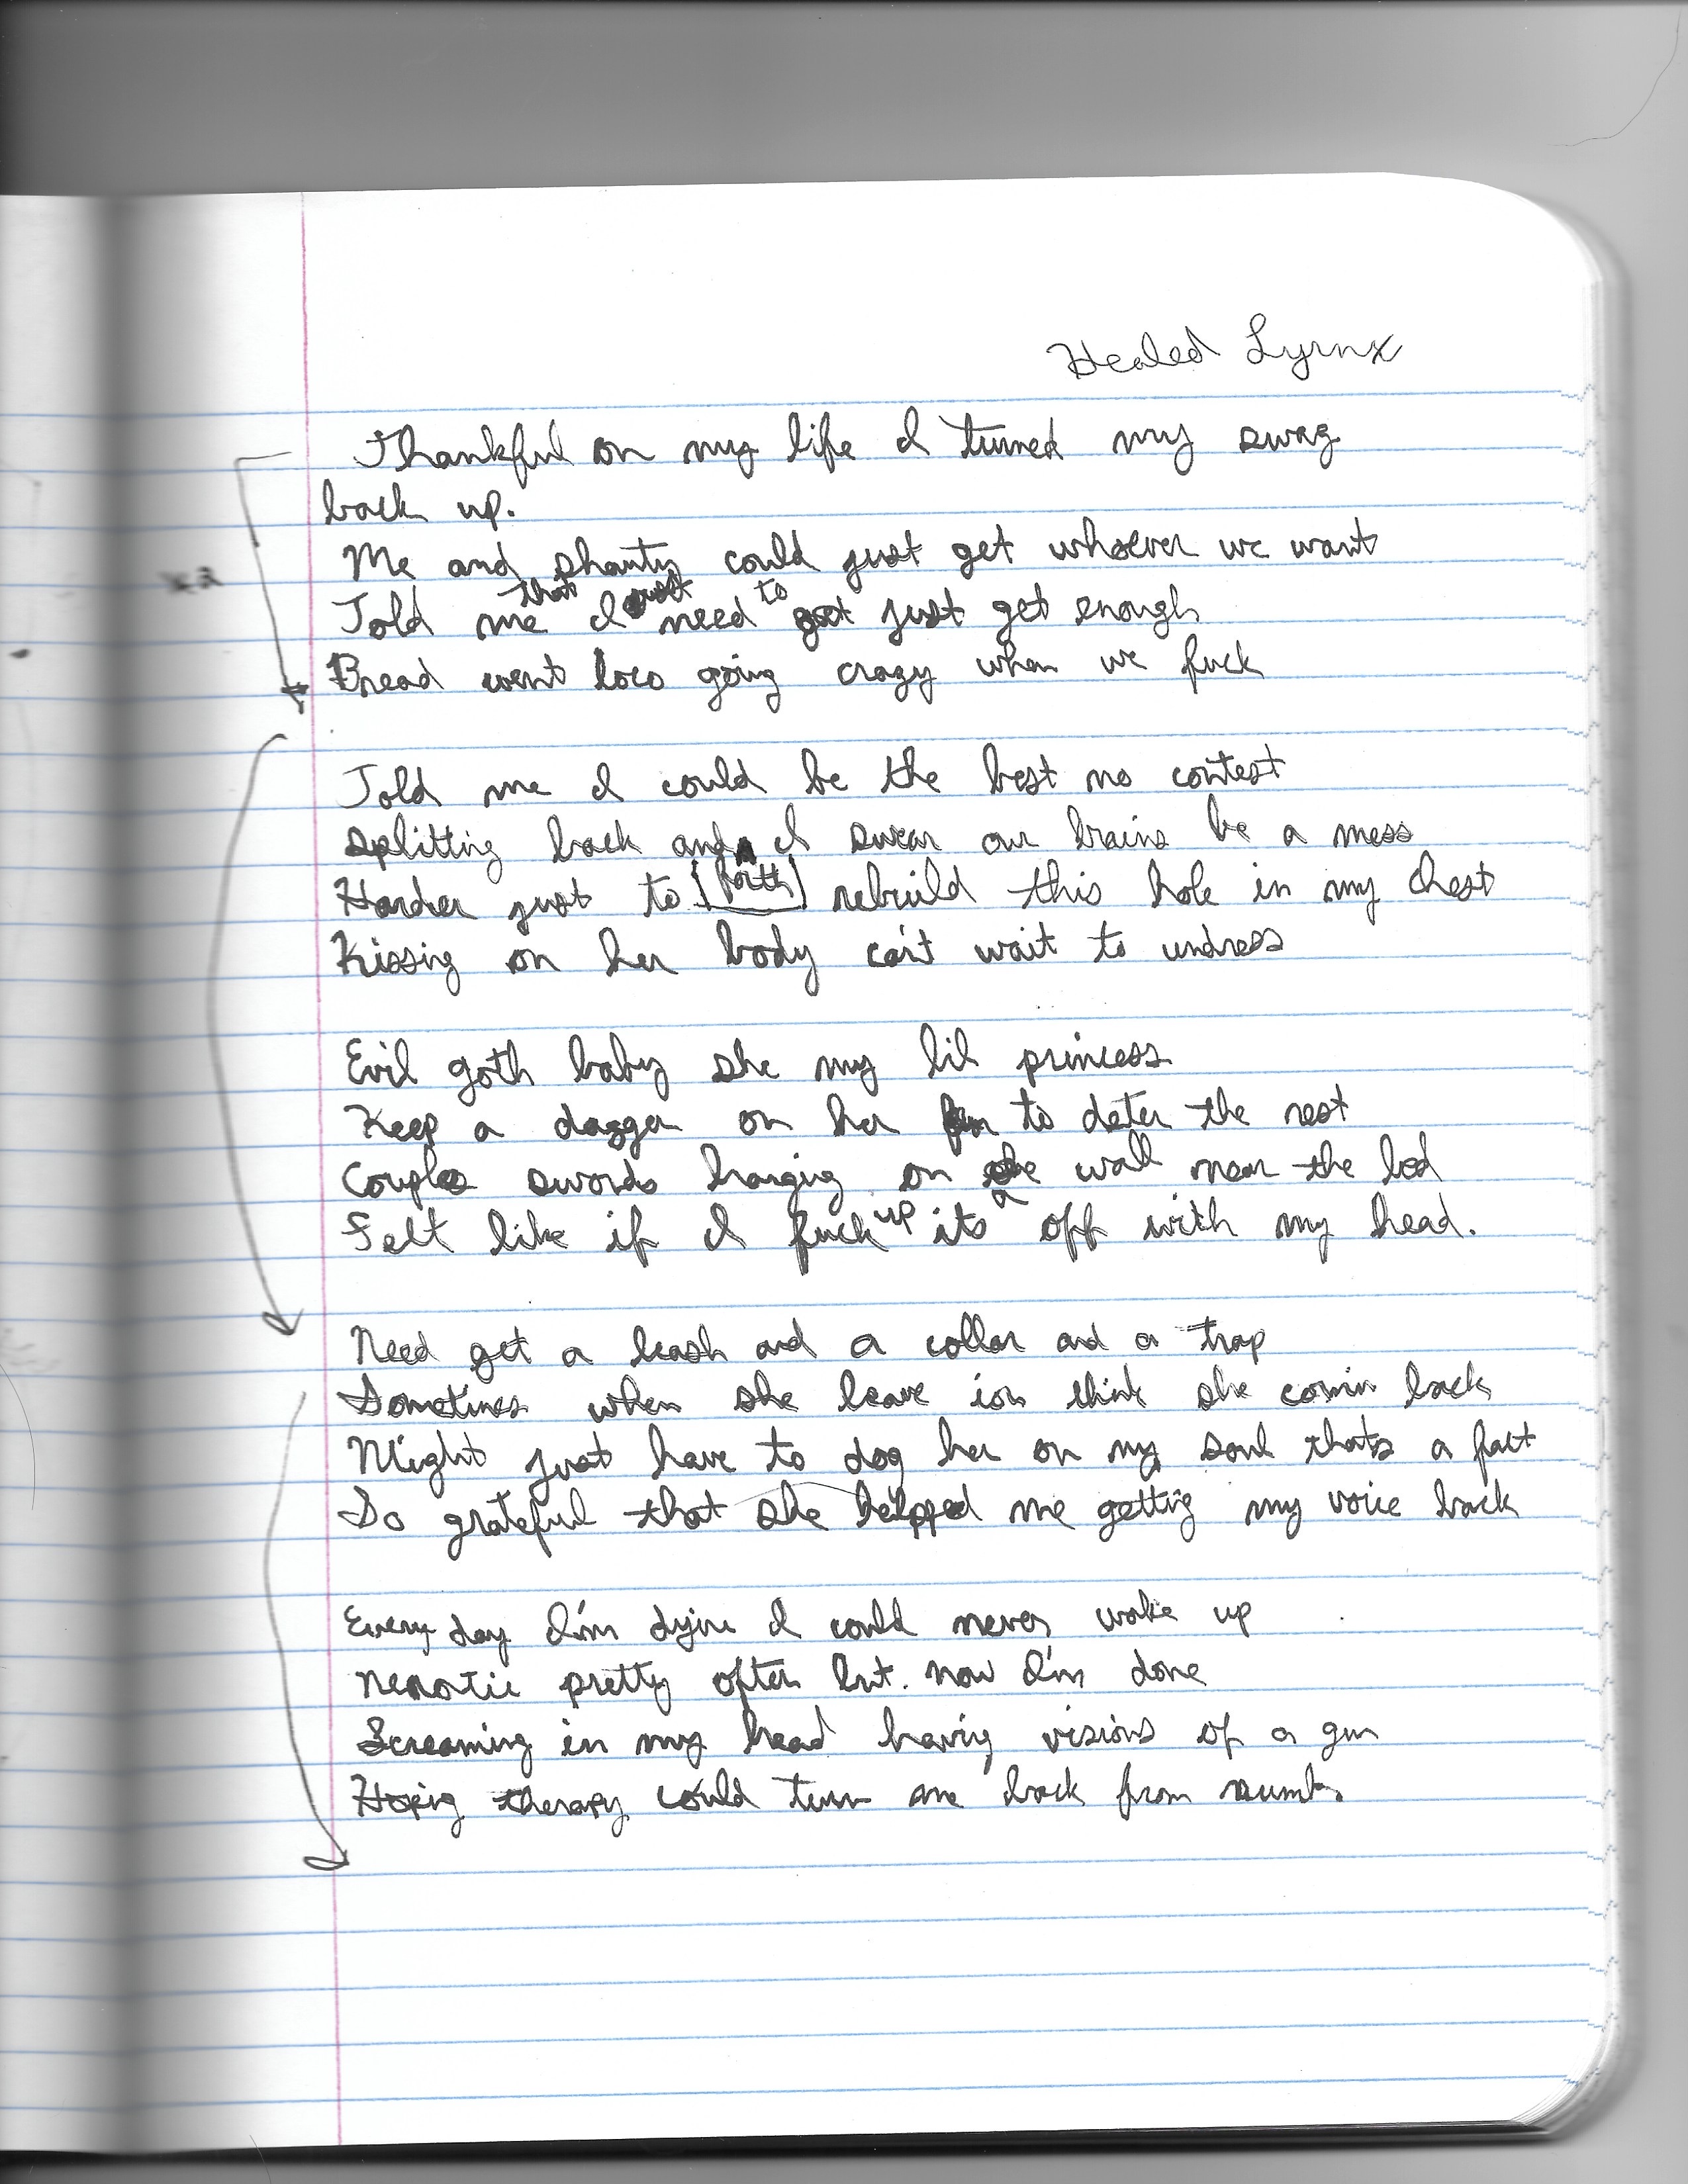 Healed Lyrnx
Thankful on my life I turned my swag
back up.
Me and shauty could just get whoever we want
x2
Told me that I need to just get enough
Bread went loco going crazy when we fuck
Told me I could be the best no contest
splitting back and [forth] I swear our brains be a mess
Harder just to rebuild this hole in my chest
Kissing on her body can't wait to undress
Evil goth baby she my lil princess
Keep a dagger on her to deter the rest
Couple swords hanging on the wall near the bed
Felt like if I fuck up its a off with my head.
Need get a leash and a collar and a trap
Sometimes when she leave ion think she comin back
Might just have to dog her on my soul thats a fact
So grateful that she helped me getting my voice back
Every day I'm dyin I could never wake up
pretty often but now I'm done
Screaming in my head having visions of a gun
Hoping therapy could turn me back from numb.